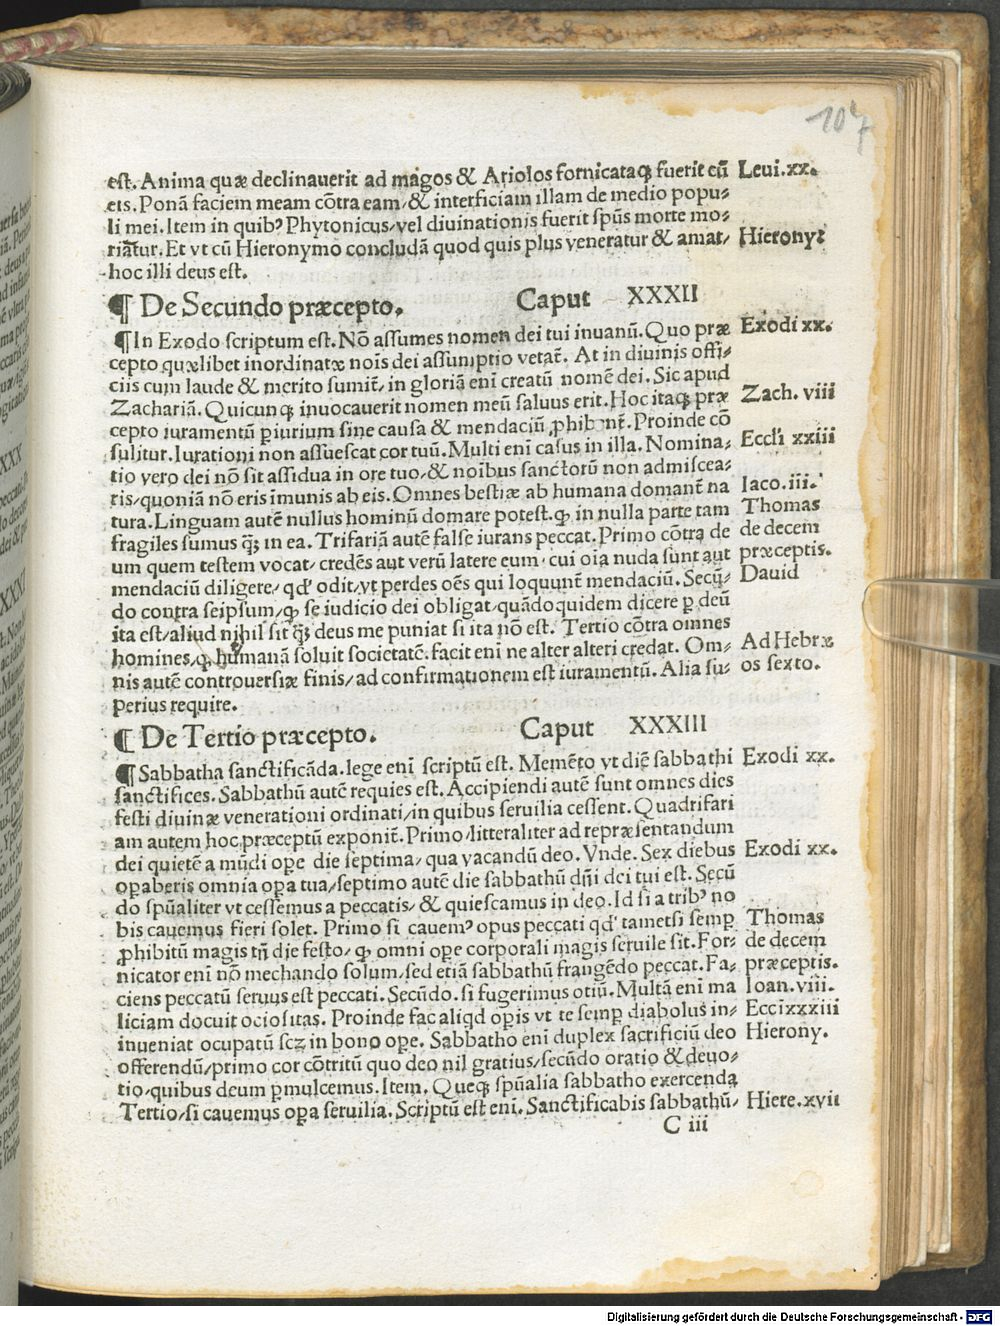 107
est. Anima quæ declinauerit ad magos & Ariolos fornicataq; fuerit cū Leui.xx.
eis. Ponā faciem meam cōtra eam/& interficiam illam de medio popu-
li mei. Item in quibꝰ Phytonicus/vel diuinationis fuerit spūs morte mo-
riat̄ur. Et vt cū Hieronymo concludā quod quis plus veneratur & amat/ Hierony:
hoc illi deus est.
¶ De Secundo præcepto. Caput XXXII
¶In Exodo scriptum est. Nō assumes nomen dei tui inuanū. Quo præ Exodi xx.
cepto quælibet inordinatæ nois dei assumptio vetat̄. At in diuinis offi-
ciis cum laude & merito sumit̄/ in gloriā eni creatū nomē dei. Sic apud
Zachariā. Quicunq; inuocauerit nomen meū saluus erit. Hoc itaq; præ Zach. viii
cepto iuramentū ꝑiurium sine causa & mendaciū ꝓhibent̄. Proinde cō
sulitur. Iurationi non assuescat cor tuū. Multi eni casus in illa. Nomina- Eccli xxiii
tio vero dei nō sit assidua in ore tuo/& noibus sanctorū non admiscea-
ris/quoniā nō eris imunis ab eis. Omnes bestiæ ab humana domant̄ na Iaco.iii.
tura. Linguam autē nullus hominū domare potest. ꝙ in nulla parte tam Thomas
fragiles sumus q̄; in ea. Trifariā autē false iurans peccat. Primo cōtra de de decem
um quem testem vocat/credēs aut verū latere eum/cui oīa nuda sunt aut præceptis.
mendaciū diligere/qd' odit/vt perdes oēs qui loquunt̄ mendaciū. Secū- Dauid
do contra seipsum/ꝙ se iudicio dei obligat/quādo quidem dicere ꝑ deū
ita est/aliud nihil sit q̄; deus me puniat si ita nō est. Tertio cōtra omnes
homines/ꝙ humanā soluit societatē: facit eni ne alter alteri credat. Om- Ad Hebræ
nis autē controuersiæ finis/ad confirmationem est iuramentū. Alia su- os sexto.
perius require.
¶ De Tertio præcepto. Caput XXXIII
¶ Sabbatha sanctificāda. lege eni scriptū est. Memēto vt diē sabbathi Exodi xx.
sanctifices. Sabbathū autē requies est. Accipiendi autē sunt omnes dies
festi diuinæ venerationi ordinati/in quibus seruilia cessent. Quadrifari
am autem hoc præceptū exponit̄. Primo/litteraliter ad repræsentandum
dei quietē a mūdi oꝑe die septima/qua vacandū deo. Vnde. Sex diebus Exodi xx.
oꝑaberis omnia oꝑa tua/septimo autē die sabbathū dn̄i dei tui est. Secū
do spūaliter vt cessemus a peccatis/& quiescamus in deo. Id si a tribꝰ no
bis cauemus fieri solet. Primo si cauemꝰ opus peccati qd' tametsi semꝑ Thomas
ꝓhibitū magis tn̄ die festo/ꝙ omni oꝑe corporali magis seruile sit. For- de decem
nicator eni nō mechando solum/sed etiā sabbathū frangēdo peccat. Fa- præceptis.
ciens peccatū seruus est peccati. Secūdo. si fugerimus otiū. Multā eni ma Ioan.viii.
liciam docuit ociositas. Proinde fac aliqd oꝑis vt te semꝑ diabolus in- Eccixxxiii
inueniat ocupatū scz in bono oꝑe. Sabbatho eni duplex sacrificiū deo Hierony.
offerendū/primo cor cōtritū quo deo nil gratius/secūdo oratio & deuo-
tio/quibus deum ꝑmulcemus. Item. Queq; spūalia sabbatho exercenda
Tertio/si cauemus oꝑa seruilia. Scriptū est eni. Sanctificabis sabbathū/ Hiere.xvii
C iii
Digitalisierung gefördert durch die Deutsche Forschungsgemeinschaft - DFG